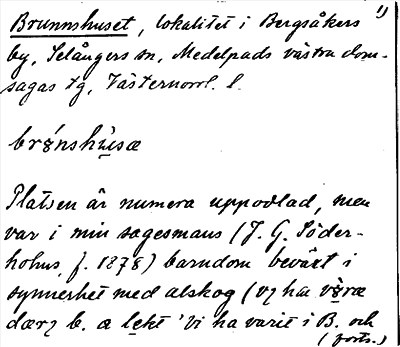 1)
Brunnshuset, lokalitet i Bergsåkers
by, Selångers sn, Medelpads västra dom-
sagas tg, Västernorrl. l.
Platsen är numera uppodlad, men
var i min sagesmans (J. G. Söder-
holms, f. 1878) barndom beväxt i
synnerhet med alskog (vɩ ha
b. a lekt 'vi ha varit i B. och
(forts.)